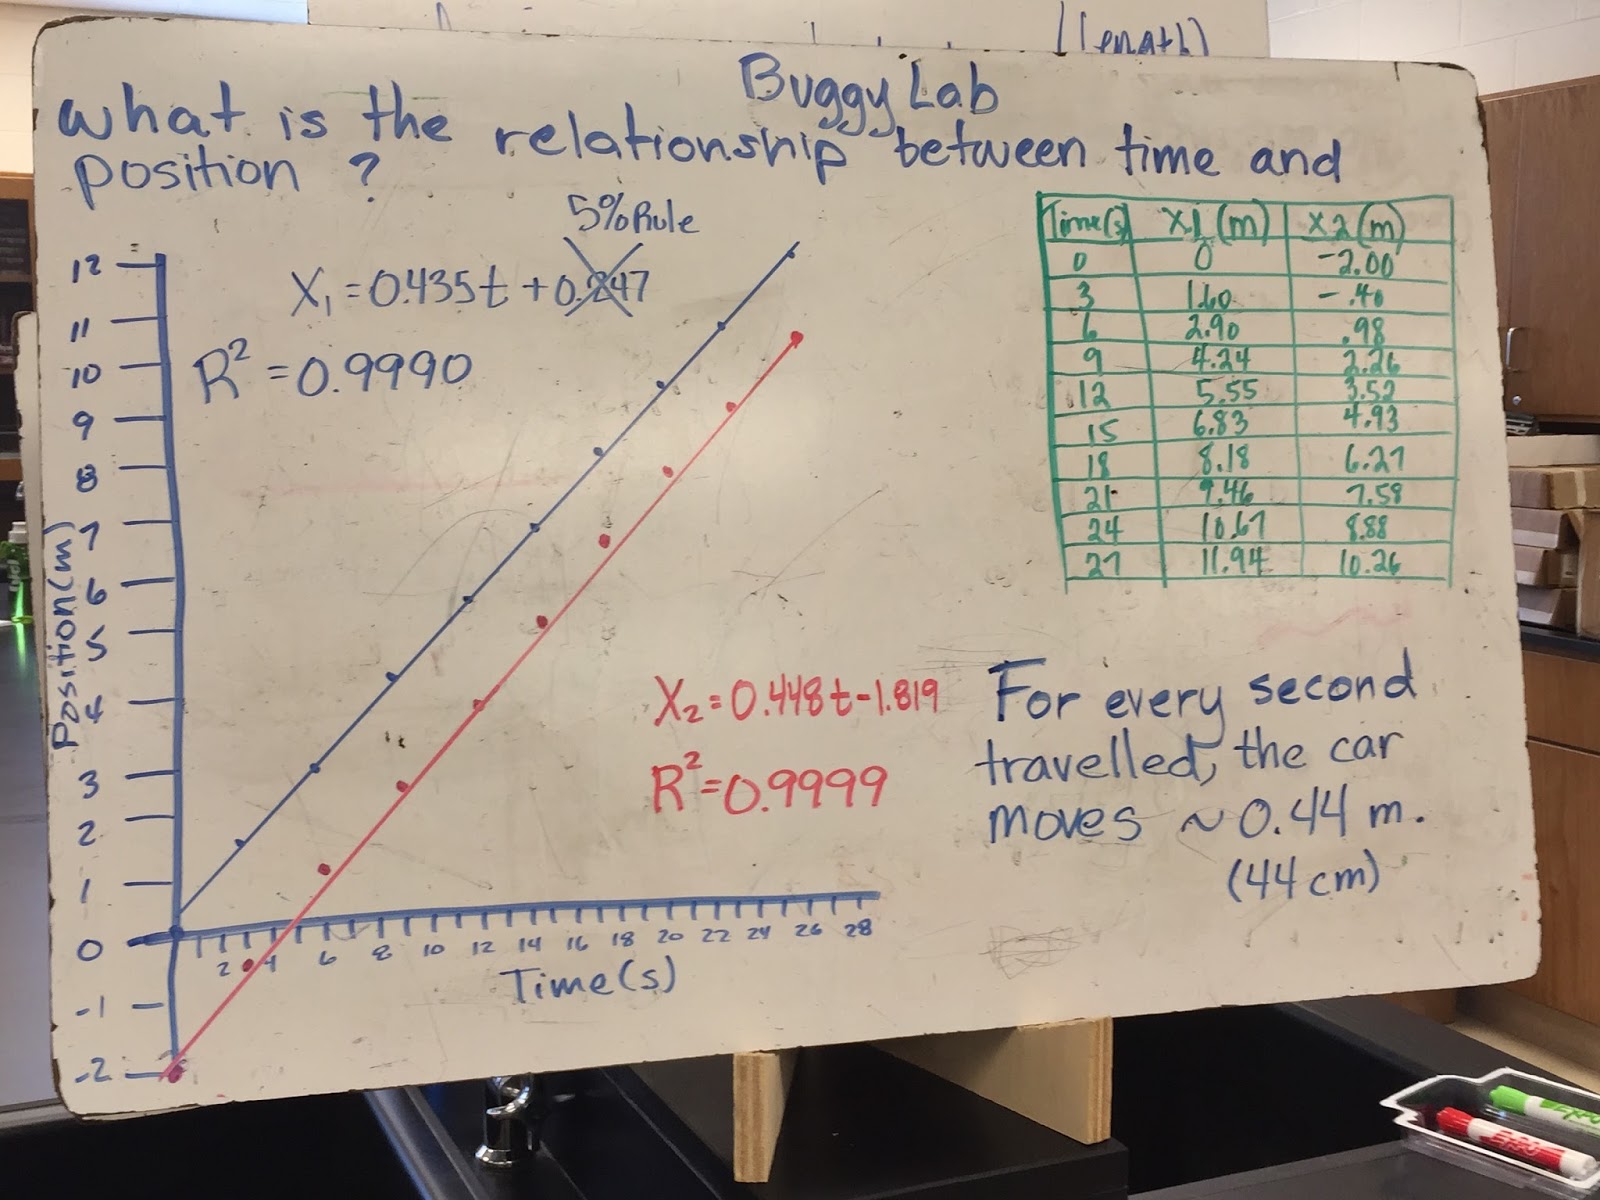 (length)
Buggy Lab
what is the relationship between time and
position ?
5% Rule
X₁ = 0.435t + 0.247
R² = 0.9990
12
11
10
9
8
7
6
5
4
3
2
1
0
-1
-2
Position(m)
2 4 6 8 10 12 14 16 18 20 22 24 26 28
Time(s)
X₂ = 0.448t - 1.819
R² = 0.9999
Time(s) X1 (m) X2 (m)
0 0 -2.00
3 1.60 -.40
6 2.90 .98
9 4.24 2.26
12 5.55 3.52
15 6.83 4.93
18 8.18 6.27
21 9.46 7.58
24 10.67 8.88
27 11.94 10.26
For every second
travelled, the car
moves ~0.44 m.
(44cm)
EXPO
EXPO